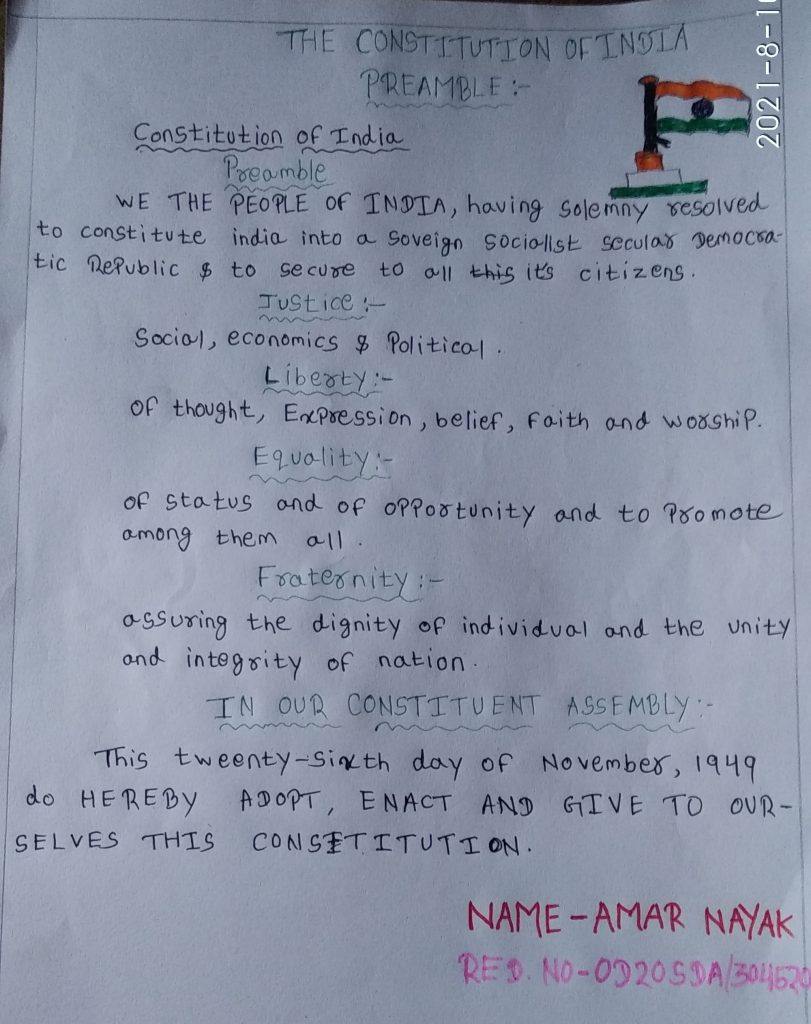 THE CONSTITUTION OF INDIA
PREAMBLE :-
2021-8-1
Constitution of India
Preamble
WE THE PEOPLE OF INDIA, having solemny resolved
to constitute india into a soveign socialist secular Democra-
tic Republic & to secure to all this it's citizens.
Justice :-
Social, economics & Political.
Liberty :-
of thought, Expression, belief, faith and worship.
Equality :-
of status and of opportunity and to promote
among them all.
Fraternity :-
assuring the dignity of individual and the unity
and integrity of nation.
IN OUR CONSTITUENT ASSEMBLY :-
This tweenty-sixth day of November, 1949
do HEREBY ADOPT, ENACT AND GIVE TO OUR-
SELVES THIS CONSETITUTION.
NAME - AMAR NAYAK
RED. NO - OD20SDA/304520